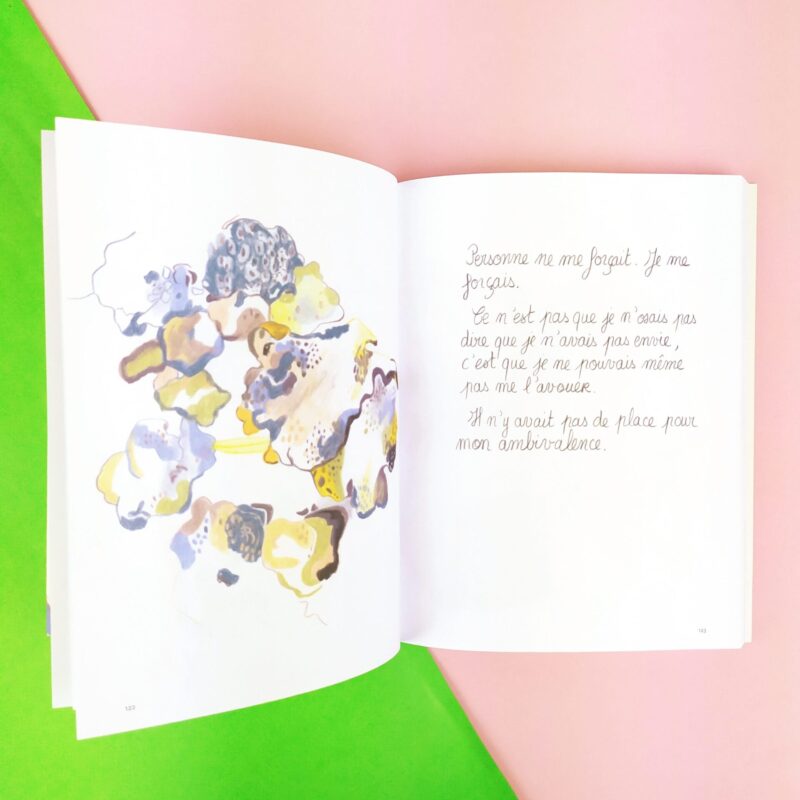 Personne ne me forçait. Je me
forçais.
Ce n'est pas que je n'osais pas
dire que je n'avais pas envie,
c'est que je ne pouvais même
pas me l'avouer.
Il n'y avait pas de place pour
mon ambivalence.
122
123